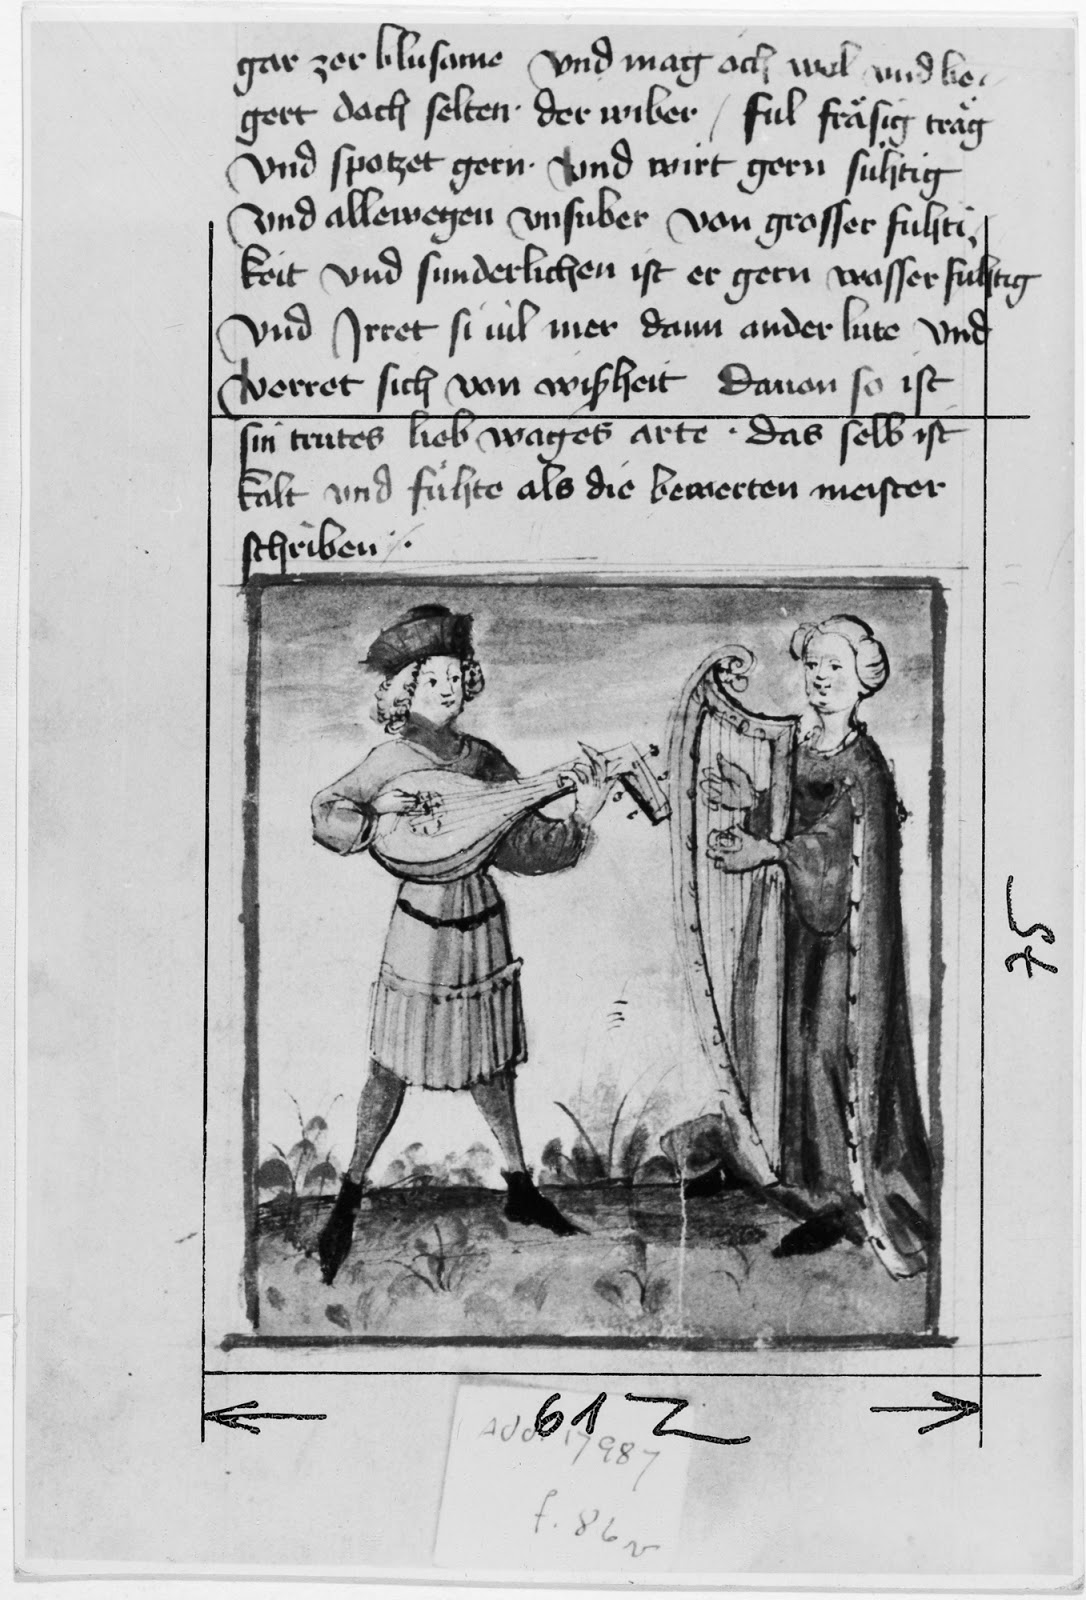 gar zer blusame vnd mag och wol vnd be
gert doch selten der wiber / ful fräsig träg
vnd spotzet gern · vnd wirt gern sühtig
vnd allewegen vnsuber von grosser fuhti
keit vnd sunderlichen ist er gern wasser suhtig
vnd Irret si uil mer dann ander lute vnd
werret sich von wißheit Dauon so ist
sin trutes lieb wages arte · das selb ist
kalt vnd fühte als die bewerten meister
schriben
75
61 Z
Add. 17987
f. 86v